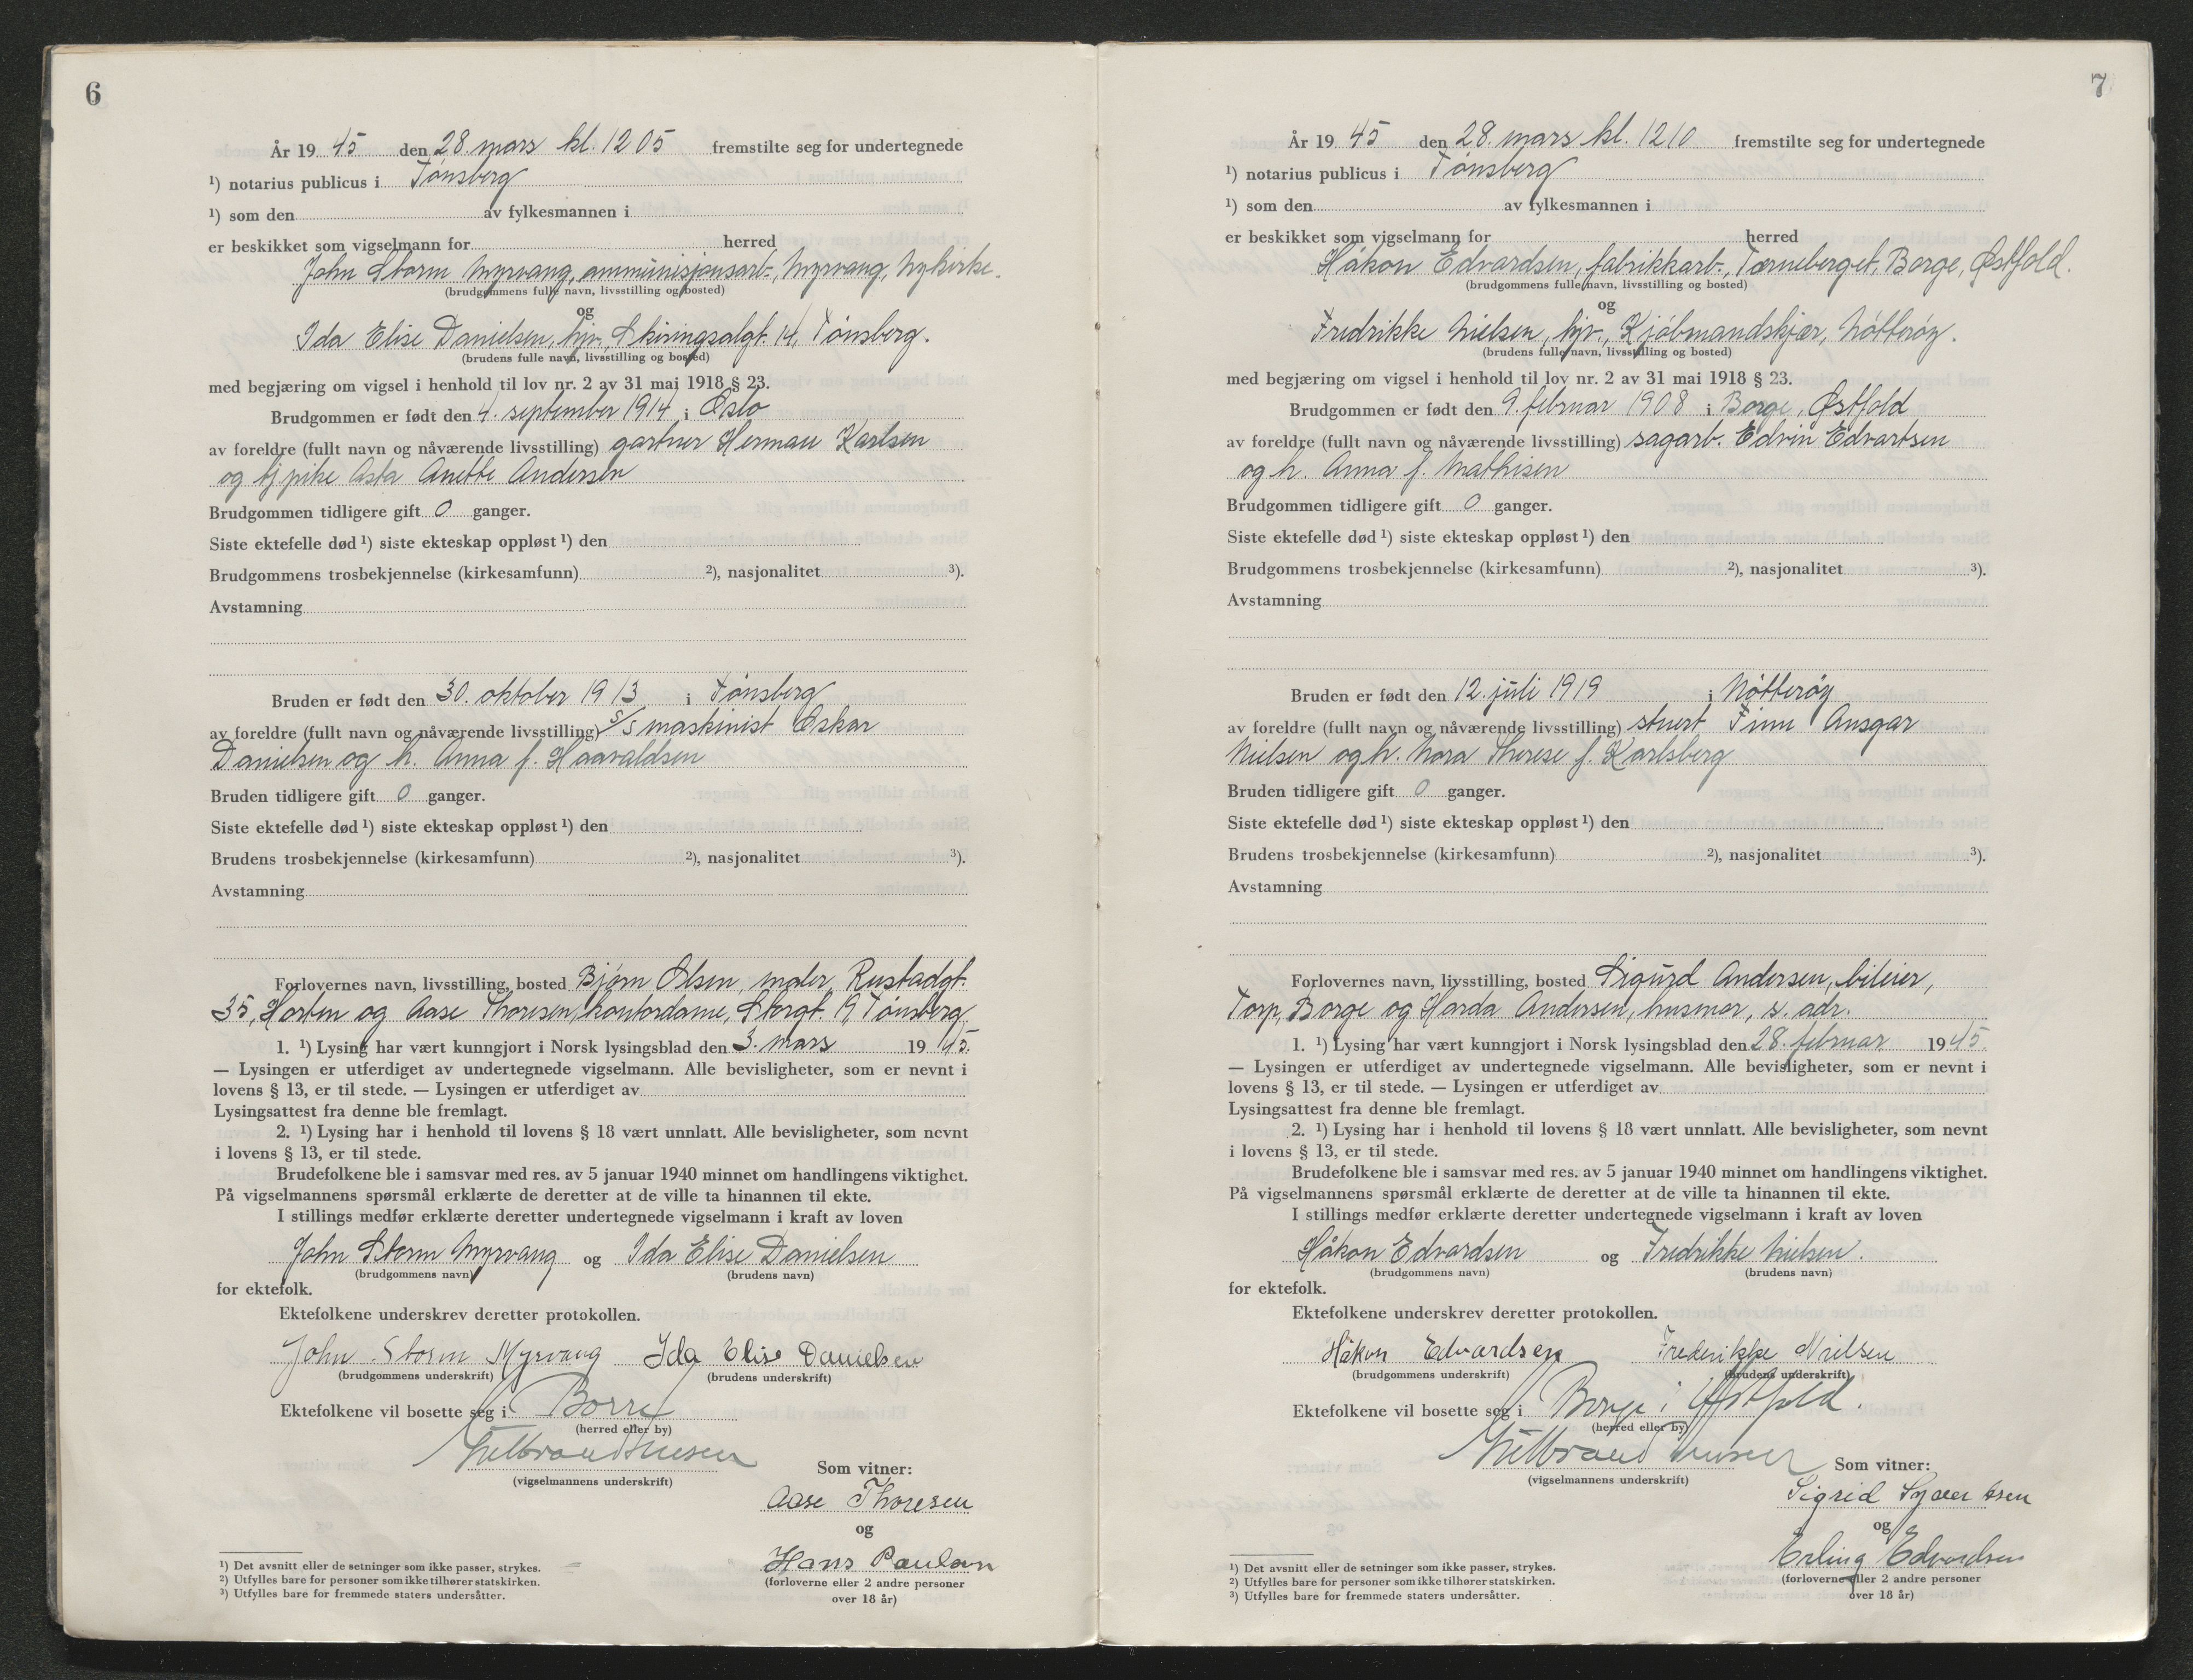 6
År 19 45 den 28. mars kl. 12 05 fremstilte seg for undertegnede
¹) notarius publicus i Tønsberg
¹) som den av fylkesmannen i
er beskikket som vigselmann for herred
John Storm Myrvang, ammunisjonsarb., Myrvang, Nykirke.
(brudgommens fulle navn, livsstilling og bosted)
og
Ida Elise Danielsen, hjv., Skiringsalgt. 14, Tønsberg.
(brudens fulle navn, livsstilling og bosted)
med begjæring om vigsel i henhold til lov nr. 2 av 31 mai 1918 § 23.
Brudgommen er født den 4. september 1914 i Oslo
av foreldre (fullt navn og nåværende livsstilling) gartner Herman Karlsen
og tj.pike Asta Anette Andersen
Brudgommen tidligere gift 0 ganger.
Siste ektefelle død ¹) siste ekteskap oppløst ¹) den
Brudgommens trosbekjennelse (kirkesamfunn) ²), nasjonalitet ³).
Avstamning
Bruden er født den 30. oktober 1913 i Tønsberg
av foreldre (fullt navn og nåværende livsstilling) s/s maskinist Oskar
Danielsen og h. Anna f. Haavaldsen
Bruden tidligere gift 0 ganger.
Siste ektefelle død ¹) siste ekteskap oppløst ¹) den
Brudens trosbekjennelse (kirkesamfunn) ²), nasjonalitet ³).
Avstamning
Forlovernes navn, livsstilling, bosted Bjørn Olsen, maler, Rustadgt.
35, Horten og Aase Thoresen, kontordame, Storgt. 19, Tønsberg.
1. ¹) Lysing har vært kunngjort i Norsk lysingsblad den 3. mars 19 45.
— Lysingen er utferdiget av undertegnede vigselmann. Alle bevisligheter, som er nevnt i
lovens § 13, er til stede. — Lysingen er utferdiget av
Lysingsattest fra denne ble fremlagt.
2. ¹) Lysing har i henhold til lovens § 18 vært unnlatt. Alle bevisligheter, som nevnt
i lovens § 13, er til stede.
Brudefolkene ble i samsvar med res. av 5 januar 1940 minnet om handlingens viktighet.
På vigselmannens spørsmål erklærte de deretter at de ville ta hinannen til ekte.
I stillings medfør erklærte deretter undertegnede vigselmann i kraft av loven
John Storm Myrvang og Ida Elise Danielsen
(brudgommens navn) (brudens navn)
for ektefolk.
Ektefolkene underskrev deretter protokollen.
John Storm Myrvang Ida Elise Danielsen
(brudgommens underskrift) (brudens underskrift)
Ektefolkene vil bosette seg i Borre
(herred eller by)
(vigselmannens underskrift)
Som vitner:
Aase Thoresen
og
Hans Paulsen
(forloverne eller 2 andre personer
over 18 år)
¹) Det avsnitt eller de setninger som ikke passer, strykes.
²) Utfylles bare for personer som ikke tilhører statskirken.
³) Utfylles bare for fremmede staters undersåtter.
7
År 19 45 den 28. mars kl. 12 10 fremstilte seg for undertegnede
¹) notarius publicus i Tønsberg
¹) som den av fylkesmannen i
er beskikket som vigselmann for herred
Håkon Edvardsen, fabrikkarb., Tørneberget, Borge, Østfold.
(brudgommens fulle navn, livsstilling og bosted)
og
Fredrikke Nielsen, hjv., Kjøbmandskjær, Nøtterøy.
(brudens fulle navn, livsstilling og bosted)
med begjæring om vigsel i henhold til lov nr. 2 av 31 mai 1918 § 23.
Brudgommen er født den 9. februar 1908 i Borge, Østfold
av foreldre (fullt navn og nåværende livsstilling) sagarb. Edvin Edvartsen
og h. Anna f. Mathisen
Brudgommen tidligere gift 0 ganger.
Siste ektefelle død ¹) siste ekteskap oppløst ¹) den
Brudgommens trosbekjennelse (kirkesamfunn) ²), nasjonalitet ³).
Avstamning
Bruden er født den 12. juli 1919 i Nøtterøy
av foreldre (fullt navn og nåværende livsstilling) stuert Finn Ansgar
Nielsen og h. Nora Therese f. Karlsberg
Bruden tidligere gift 0 ganger.
Siste ektefelle død ¹) siste ekteskap oppløst ¹) den
Brudens trosbekjennelse (kirkesamfunn) ²), nasjonalitet ³).
Avstamning
Forlovernes navn, livsstilling, bosted Sigurd Andersen, bileier,
Torp, Borge og Harda Andersen, husmor, s. adr.
1. ¹) Lysing har vært kunngjort i Norsk lysingsblad den 28. februar 19 45.
— Lysingen er utferdiget av undertegnede vigselmann. Alle bevisligheter, som er nevnt i
lovens § 13, er til stede. — Lysingen er utferdiget av
Lysingsattest fra denne ble fremlagt.
2. ¹) Lysing har i henhold til lovens § 18 vært unnlatt. Alle bevisligheter, som nevnt
i lovens § 13, er til stede.
Brudefolkene ble i samsvar med res. av 5 januar 1940 minnet om handlingens viktighet.
På vigselmannens spørsmål erklærte de deretter at de ville ta hinannen til ekte.
I stillings medfør erklærte deretter undertegnede vigselmann i kraft av loven
Håkon Edvardsen og Fredrikke Nielsen.
(brudgommens navn) (brudens navn)
for ektefolk.
Ektefolkene underskrev deretter protokollen.
Håkon Edvardsen Frederikke Nielsen
(brudgommens underskrift) (brudens underskrift)
Ektefolkene vil bosette seg i Borge i Østfold.
(herred eller by)
(vigselmannens underskrift)
Som vitner:
Sigrid Syvertsen
og
Erling Edvardsen
(forloverne eller 2 andre personer
over 18 år)
¹) Det avsnitt eller de setninger som ikke passer, strykes.
²) Utfylles bare for personer som ikke tilhører statskirken.
³) Utfylles bare for fremmede staters undersåtter.